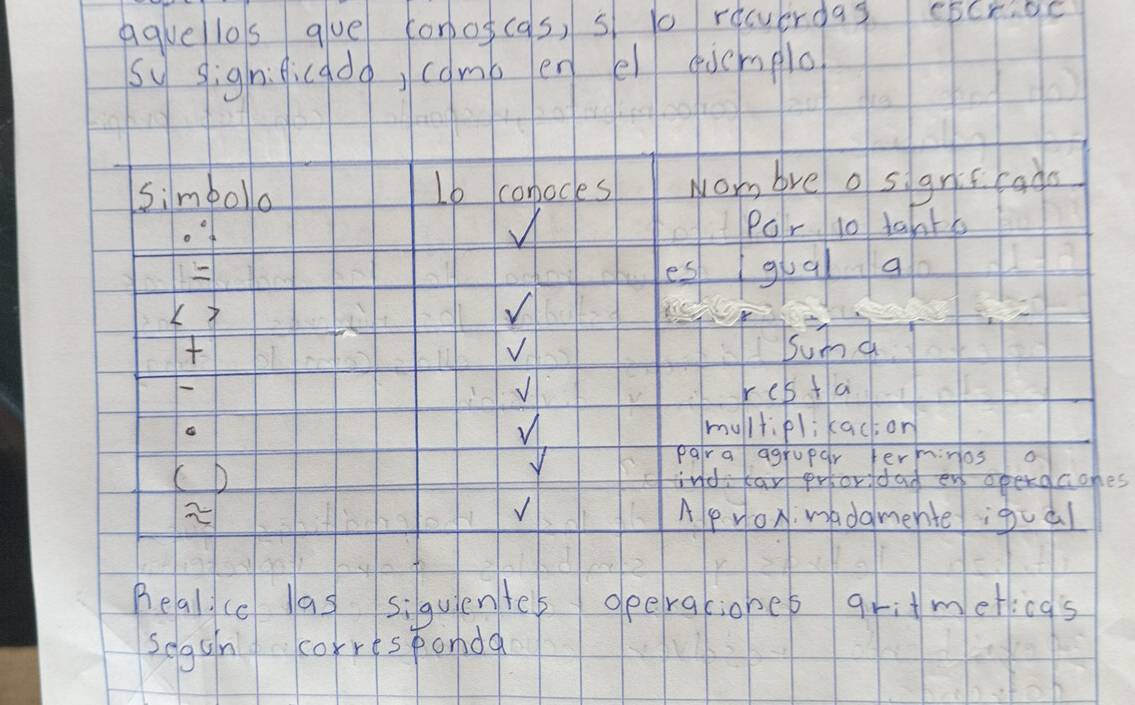 aquellos que conoscas, si lo recuerdas escribe
su significado, como en el ejemplo
Simbolo lo conoces Nombre o significado
∴ ✓ Por lo tanto
= es igual a
< > ✓
+ ✓ Suma
- ✓ resta
• ✓ multiplicacion
( ) ✓ para agrupar terminos o
indicar prioridad en operaciones
≈ ✓ Aproximadamente igual
Realice las siguientes operaciones aritmeticas
según corresponda